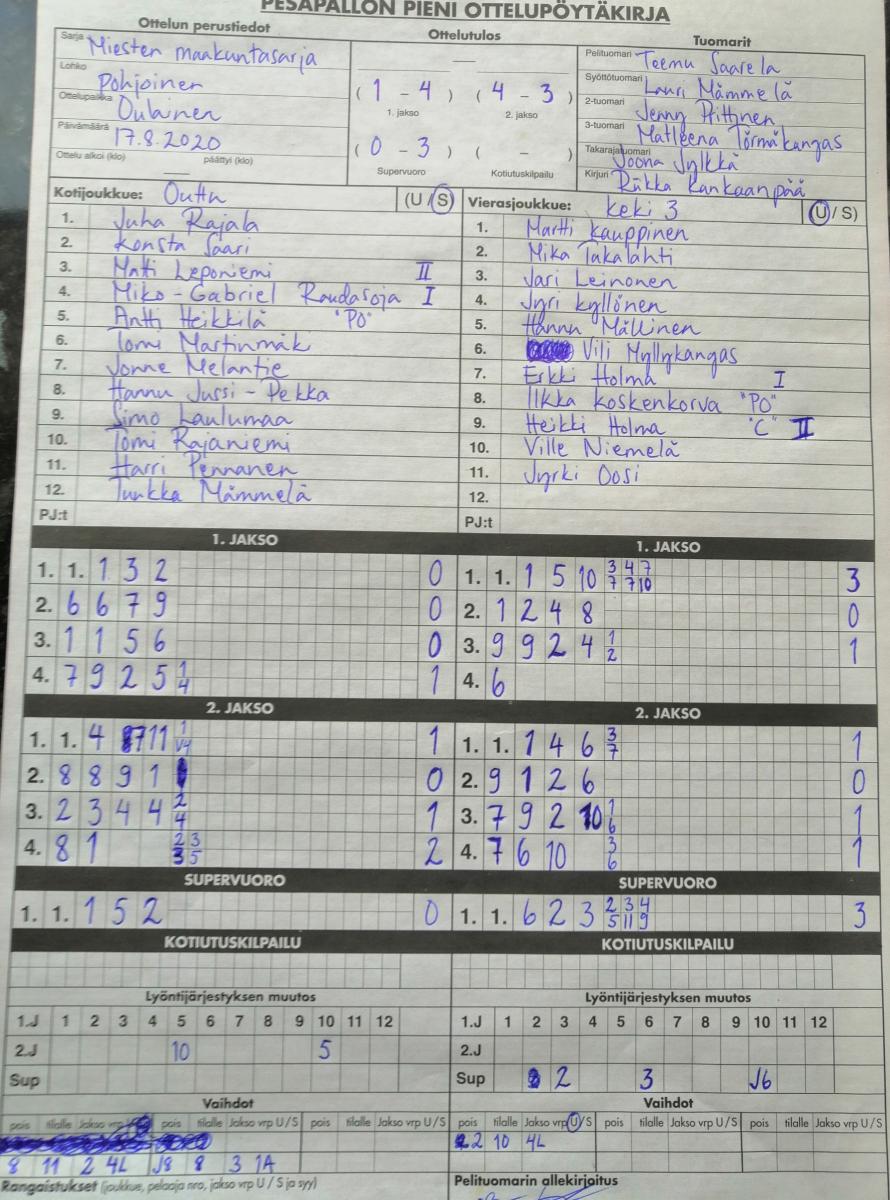 PESÄPALLON PIENI OTTELUPÖYTÄKIRJA
Ottelun perustiedot Ottelutulos Tuomarit
Sarja Miesten maakuntasarja
Lohko Pohjoinen
Ottelupaikka Oulainen
Päivämäärä 17.8.2020
Ottelu alkoi (klo) päättyi (klo)
(1 - 4) (4 - 3)
1. jakso 2. jakso
(0 - 3) ( - )
Supervuoro Kotiutuskilpailu
Pelituomari Teemu Saarela
Syöttötuomari Lauri Mämmelä
2-tuomari Jenny
3-tuomari Matleena Törmäkangas
Takarajatuomari Joona Jylkkä
Kirjuri Riikka Kankaanpää
Kotijoukkue: Outta (U/S)
1. Juha Rajala
2. Konsta Saari
3. Matti Leponiemi II
4. Miko-Gabriel Raudasoja I
5. Antti Heikkilä "PO"
6. Tomi Martinmäk
7. Jonne Melantie
8. Hannu Jussi-Pekka
9. Simo Laulumaa
10. Tomi Rajaniemi
11. Harri Pennanen
12. Tuukka Mämmelä
PJ:t
Vierasjoukkue: Keki 3 (U/S)
1. Martti Kauppinen
2. Mika Takalahti
3. Jari Leinonen
4. Jyri Kyllönen
5. Hannu Mällinen
6. Vili Myllykangas
7. Erkki Holma I
8. Ilkka Koskenkorva "PO"
9. Heikki Holma "C" II
10. Ville Niemelä
11. Jyrki Oosi
12.
PJ:t
1. JAKSO
1. 1. 1 3 2 0
2. 6 6 7 9 0
3. 1 1 5 6 0
4. 7 9 2 5 1/4 1
1. JAKSO
1. 1. 1 5 10 3/7 4/7 7/10 3
2. 1 2 4 8 0
3. 9 9 2 4 1/2 1
4. 6
2. JAKSO
1. 1. 4 7 11 1/V4 1
2. 8 8 9 1 0
3. 2 3 4 4 2/4 1
4. 8 1 2/3 3/5 2
2. JAKSO
1. 1. 1 4 6 3/7 1
2. 9 1 2 6 0
3. 7 9 2 10 1/6 1
4. 7 6 10 3/6 1
SUPERVUORO
1. 1. 1 5 2 0
SUPERVUORO
1. 1. 6 2 3 2/5 3/11 4/9 3
KOTIUTUSKILPAILU
KOTIUTUSKILPAILU
Lyöntijärjestyksen muutos
1.J 1 2 3 4 5 6 7 8 9 10 11 12
2.J 10 5
Sup
Lyöntijärjestyksen muutos
1.J 1 2 3 4 5 6 7 8 9 10 11 12
2.J
Sup 2 3 J6
Vaihdot
pois tilalle Jakso vrp pois tilalle Jakso vrp U/S pois tilalle Jakso vrp U/S
8 11 2 4L J8 8 3 1A
Rangaistukset (joukkue, pelaaja nro, jakso vrp U / S ja syy)
Vaihdot
pois tilalle Jakso vrp U/S pois tilalle Jakso vrp U/S pois tilalle Jakso vrp U/S
2 10 4L
Pelituomarin allekirjoitus